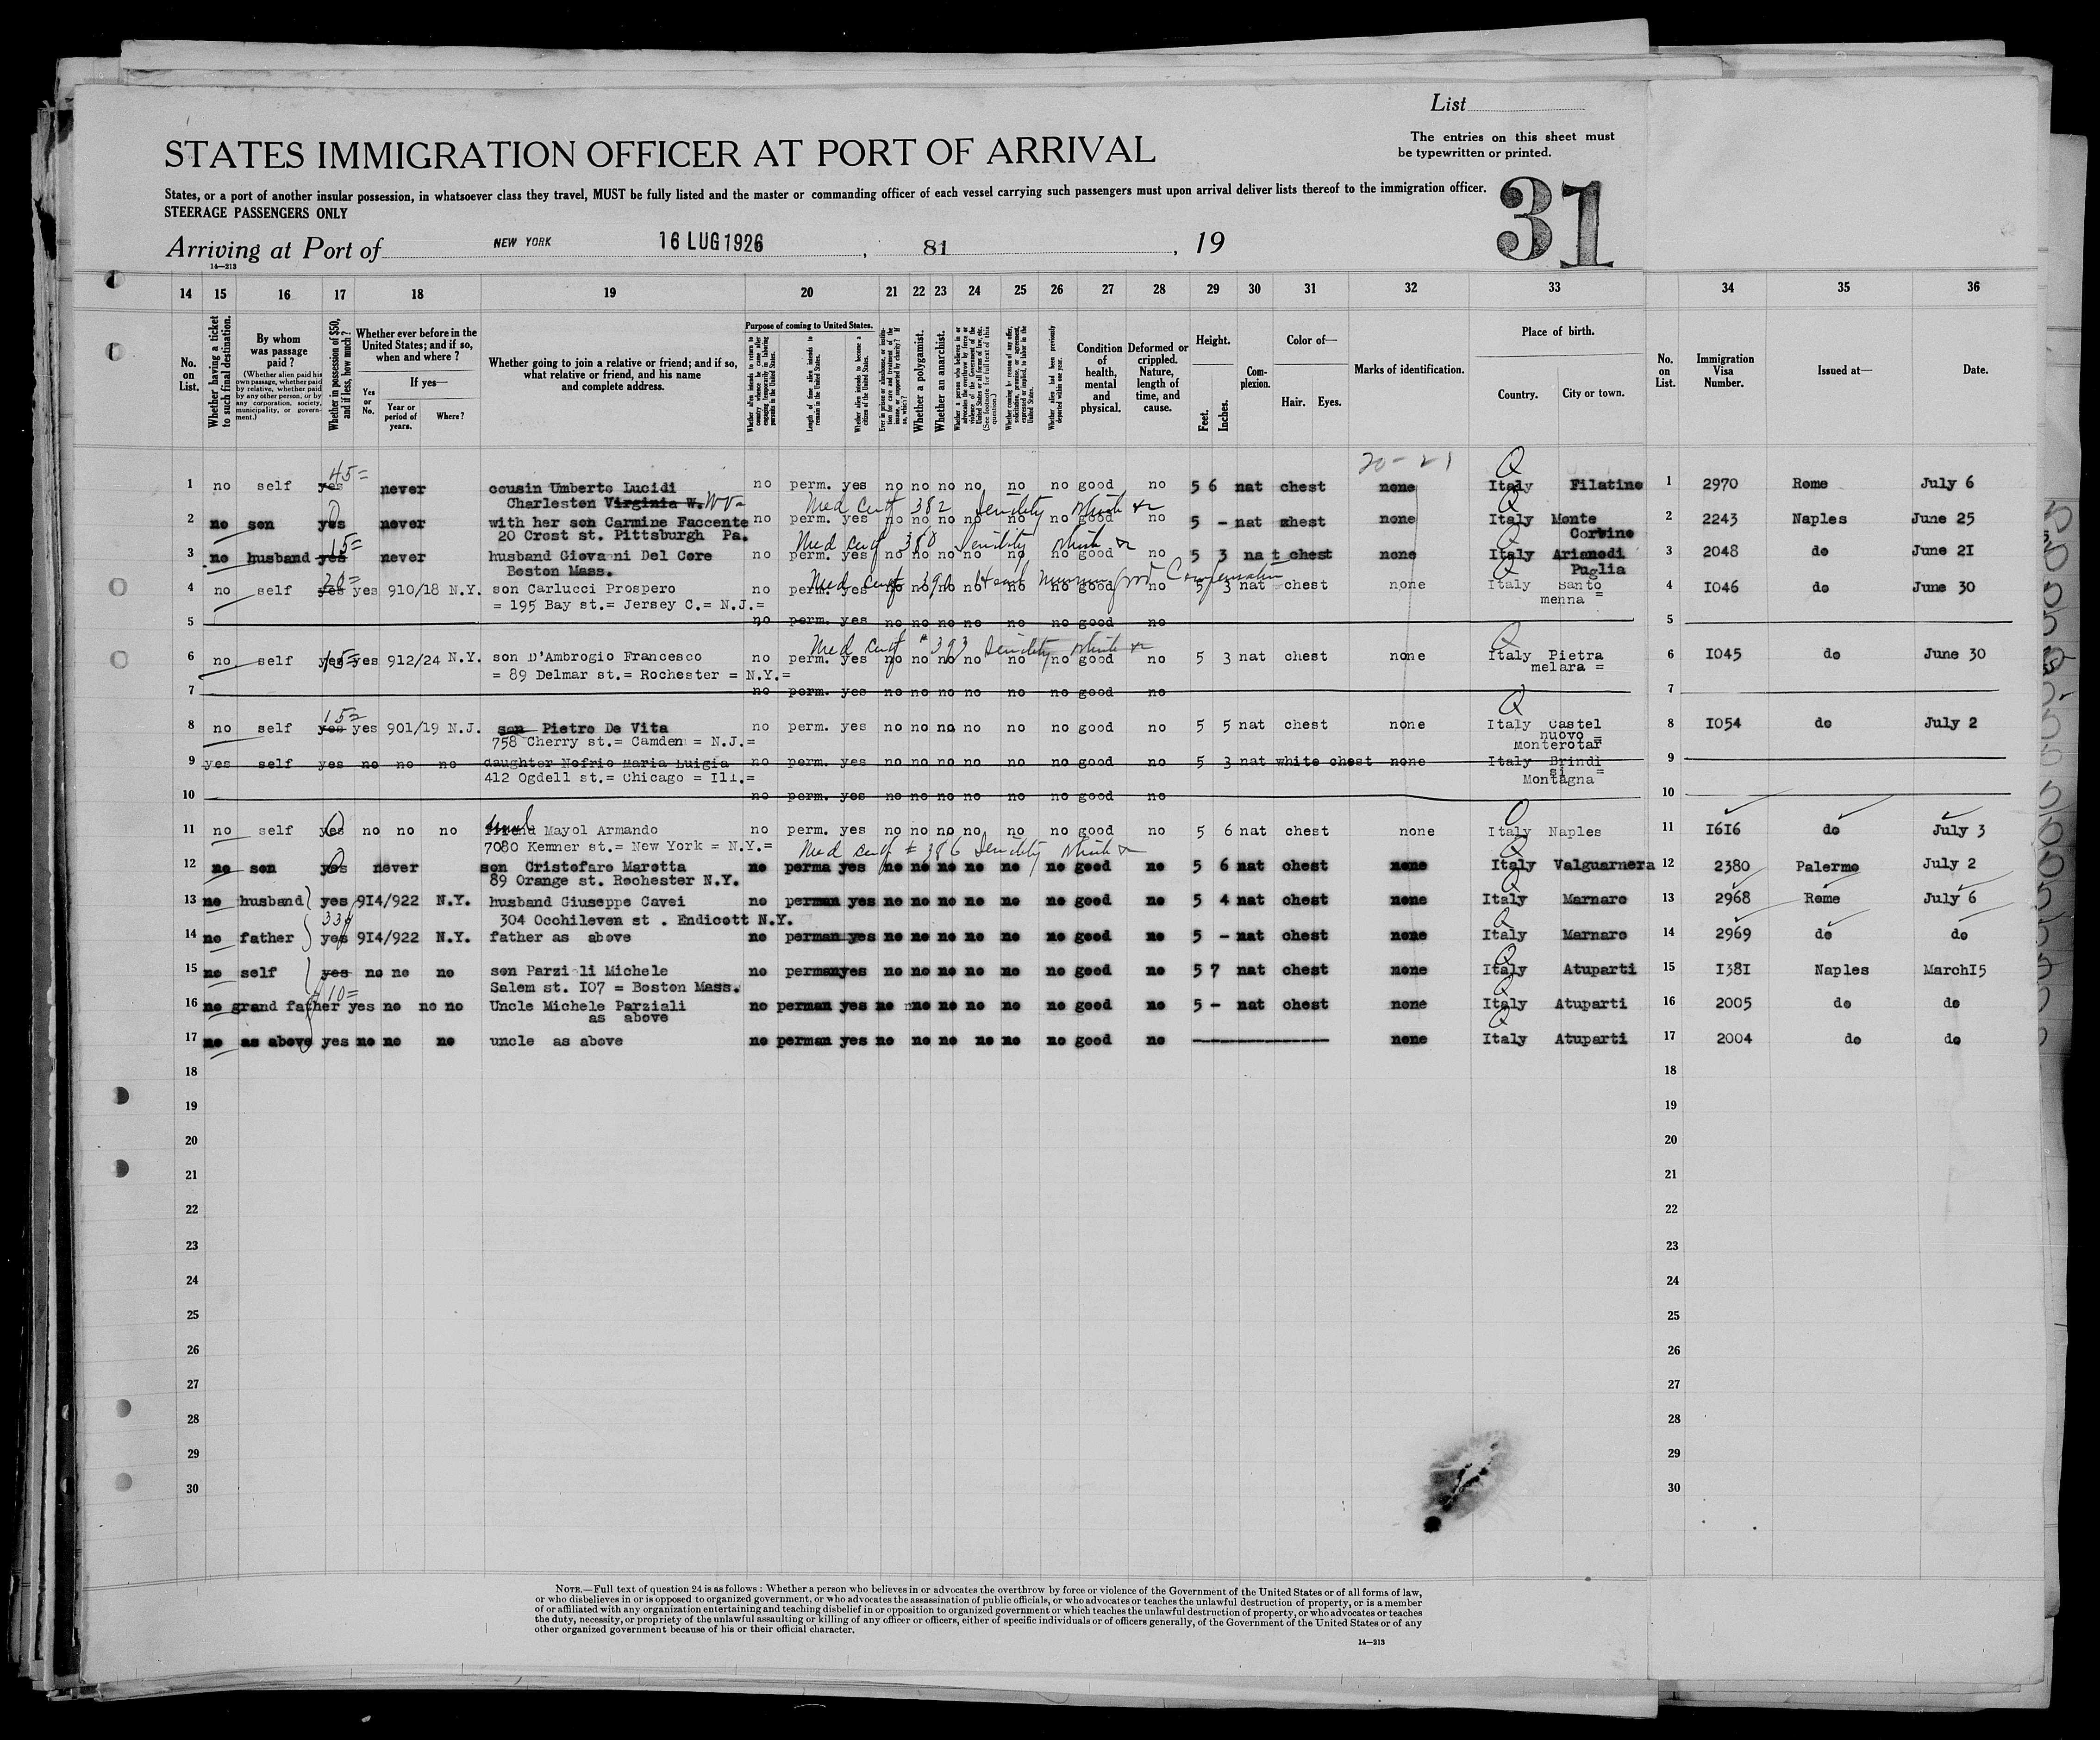 List
The entries on this sheet must
be typewritten or printed.
STATES IMMIGRATION OFFICER AT PORT OF ARRIVAL
States, or a port of another insular possession, in whatsoever class they travel, MUST be fully listed and the master or commanding officer of each vessel carrying such passengers must upon arrival deliver lists thereof to the immigration officer.
STEERAGE PASSENGERS ONLY
31
Arriving at Port of NEW YORK 16 LUG 1926 , 81 , 19
14—213
14 15 16 17 18 19 20 21 22 23 24 25 26 27 28 29 30 31 32 33 34 35 36
No. on List.
Whether having a ticket to such final destination.
By whom was passage paid?
(Whether alien paid his own passage, whether paid by relative, whether paid by any other person, or by any corporation, society, municipality, or government.)
Whether in possession of $50, and if less, how much?
Whether ever before in the United States; and if so, when and where?
Yes or No.
If yes—
Year or period of years.
Where?
Whether going to join a relative or friend; and if so, what relative or friend, and his name and complete address.
Purpose of coming to United States.
Length of time alien intends to remain in the United States.
Whether alien intends to become a citizen of the United States.
Whether a polygamist.
Whether an anarchist.
Condition of health, mental and physical.
Deformed or crippled. Nature, length of time, and cause.
Height.
Feet. Inches.
Complexion.
Color of—
Hair. Eyes.
Marks of identification.
Place of birth.
Country. City or town.
No. on List.
Immigration Visa Number.
Issued at—
Date.
20-21
45=
1 no self yes never cousin Umberto Lucidi no perm. yes no no no no no no good no 5 6 nat chest none Italy Filatino 1 2970 Rome July 6
Charleston Virginia W. W Va
Med Cert 382 Senility
2 no son yes never with her son Carmine Faccente no perm. yes no no no no no no good no 5 - nat chest none Italy Monte Corbino 2 2243 Naples June 25
20 Crost st. Pittsburgh Pa.
15=
Med Cert 388 Senility
3 no husband yes never husband Giovanni Del Core no perm. yes no no no no no no good no 5 3 nat chest none Italy Arianodi Puglia 3 2048 do June 21
Boston Mass.
20=
Med Cert 390 Heart murmur good Compensation
4 no self yes yes 910/18 N.Y. son Carlucci Prospero no perm. yes no no no no no no good no 5 3 nat chest none Italy Santo menna = 4 1046 do June 30
= 195 Bay st.= Jersey C.= N.J.=
5 no perm. yes no no no no no no good no 5
Med Cert # 393 Senility
6 no self yes 15= yes 912/24 N.Y. son D'Ambrogio Francesco no perm. yes no no no no no no good no 5 3 nat chest none Italy Pietra melara = 6 1045 do June 30
= 89 Delmar st.= Rochester = N.Y.=
7 no perm. yes no no no no no no good no 7
15=
8 no self yes yes 901/19 N.J. son Pietro De Vita no perm. yes no no no no no no good no 5 5 nat chest none Italy Castel nuovo = Monterotar 8 1054 do July 2
758 Cherry st.= Camden = N.J.=
9 yes self yes no no no daughter Nofrio Maria Luigia no perm. yes no no no no no no good no 5 3 nat white chest none Italy Brindi si = Montagna 9
412 Ogdell st.= Chicago = Ill.=
10 no perm. yes no no no no no no good no 10
11 no self yes no no no friend Mayol Armando no perm. yes no no no no no no good no 5 6 nat chest none Italy Naples 11 1616 do July 3
7080 Kemner st.= New York = N.Y.=
Med Cert # 386 Senility
12 no son yes never son Cristofaro Marotta no perma yes no no no no no no good no 5 6 nat chest none Italy Valguarnera 12 2380 Palermo July 2
89 Orange st. Rochester N.Y.
13 no husband yes 914/922 N.Y. husband Giuseppe Cavei no perman yes no no no no no no good no 5 4 nat chest none Italy Marnaro 13 2968 Rome July 6
304 Occhileven st . Endicott N.Y.
14 no father yes 914/922 N.Y. father as above no perman yes no no no no no no good no 5 - nat chest none Italy Marnaro 14 2969 do do
15 no self yes no no no son Parziali Michele no permanyes no no no no no no good no 5 7 nat chest none Italy Atuparti 15 1381 Naples March15
Salem st. 107 = Boston Mass.
10=
16 no grand father yes no no no Uncle Michele Parziali no perman yes no no no no no no good no 5 - nat chest none Italy Atuparti 16 2005 do do
as above
17 no as above yes no no no uncle as above no perman yes no no no no no no good no none Italy Atuparti 17 2004 do do
18 18
19 19
20 20
21 21
22 22
23 23
24 24
25 25
26 26
27 27
28 28
29 29
30 30
NOTE.—Full text of question 24 is as follows: Whether a person who believes in or advocates the overthrow by force or violence of the Government of the United States or of all forms of law,
or who disbelieves in or is opposed to organized government, or who advocates the assassination of public officials, or who advocates or teaches the unlawful destruction of property, or is a member
of or affiliated with any organization entertaining and teaching disbelief in or opposition to organized government or which teaches the unlawful destruction of property, or who advocates or teaches
the duty, necessity, or propriety of the unlawful assaulting or killing of any officer or officers, either of specific individuals or of officers generally, of the Government of the United States or of any
other organized government because of his or their official character.
14—213